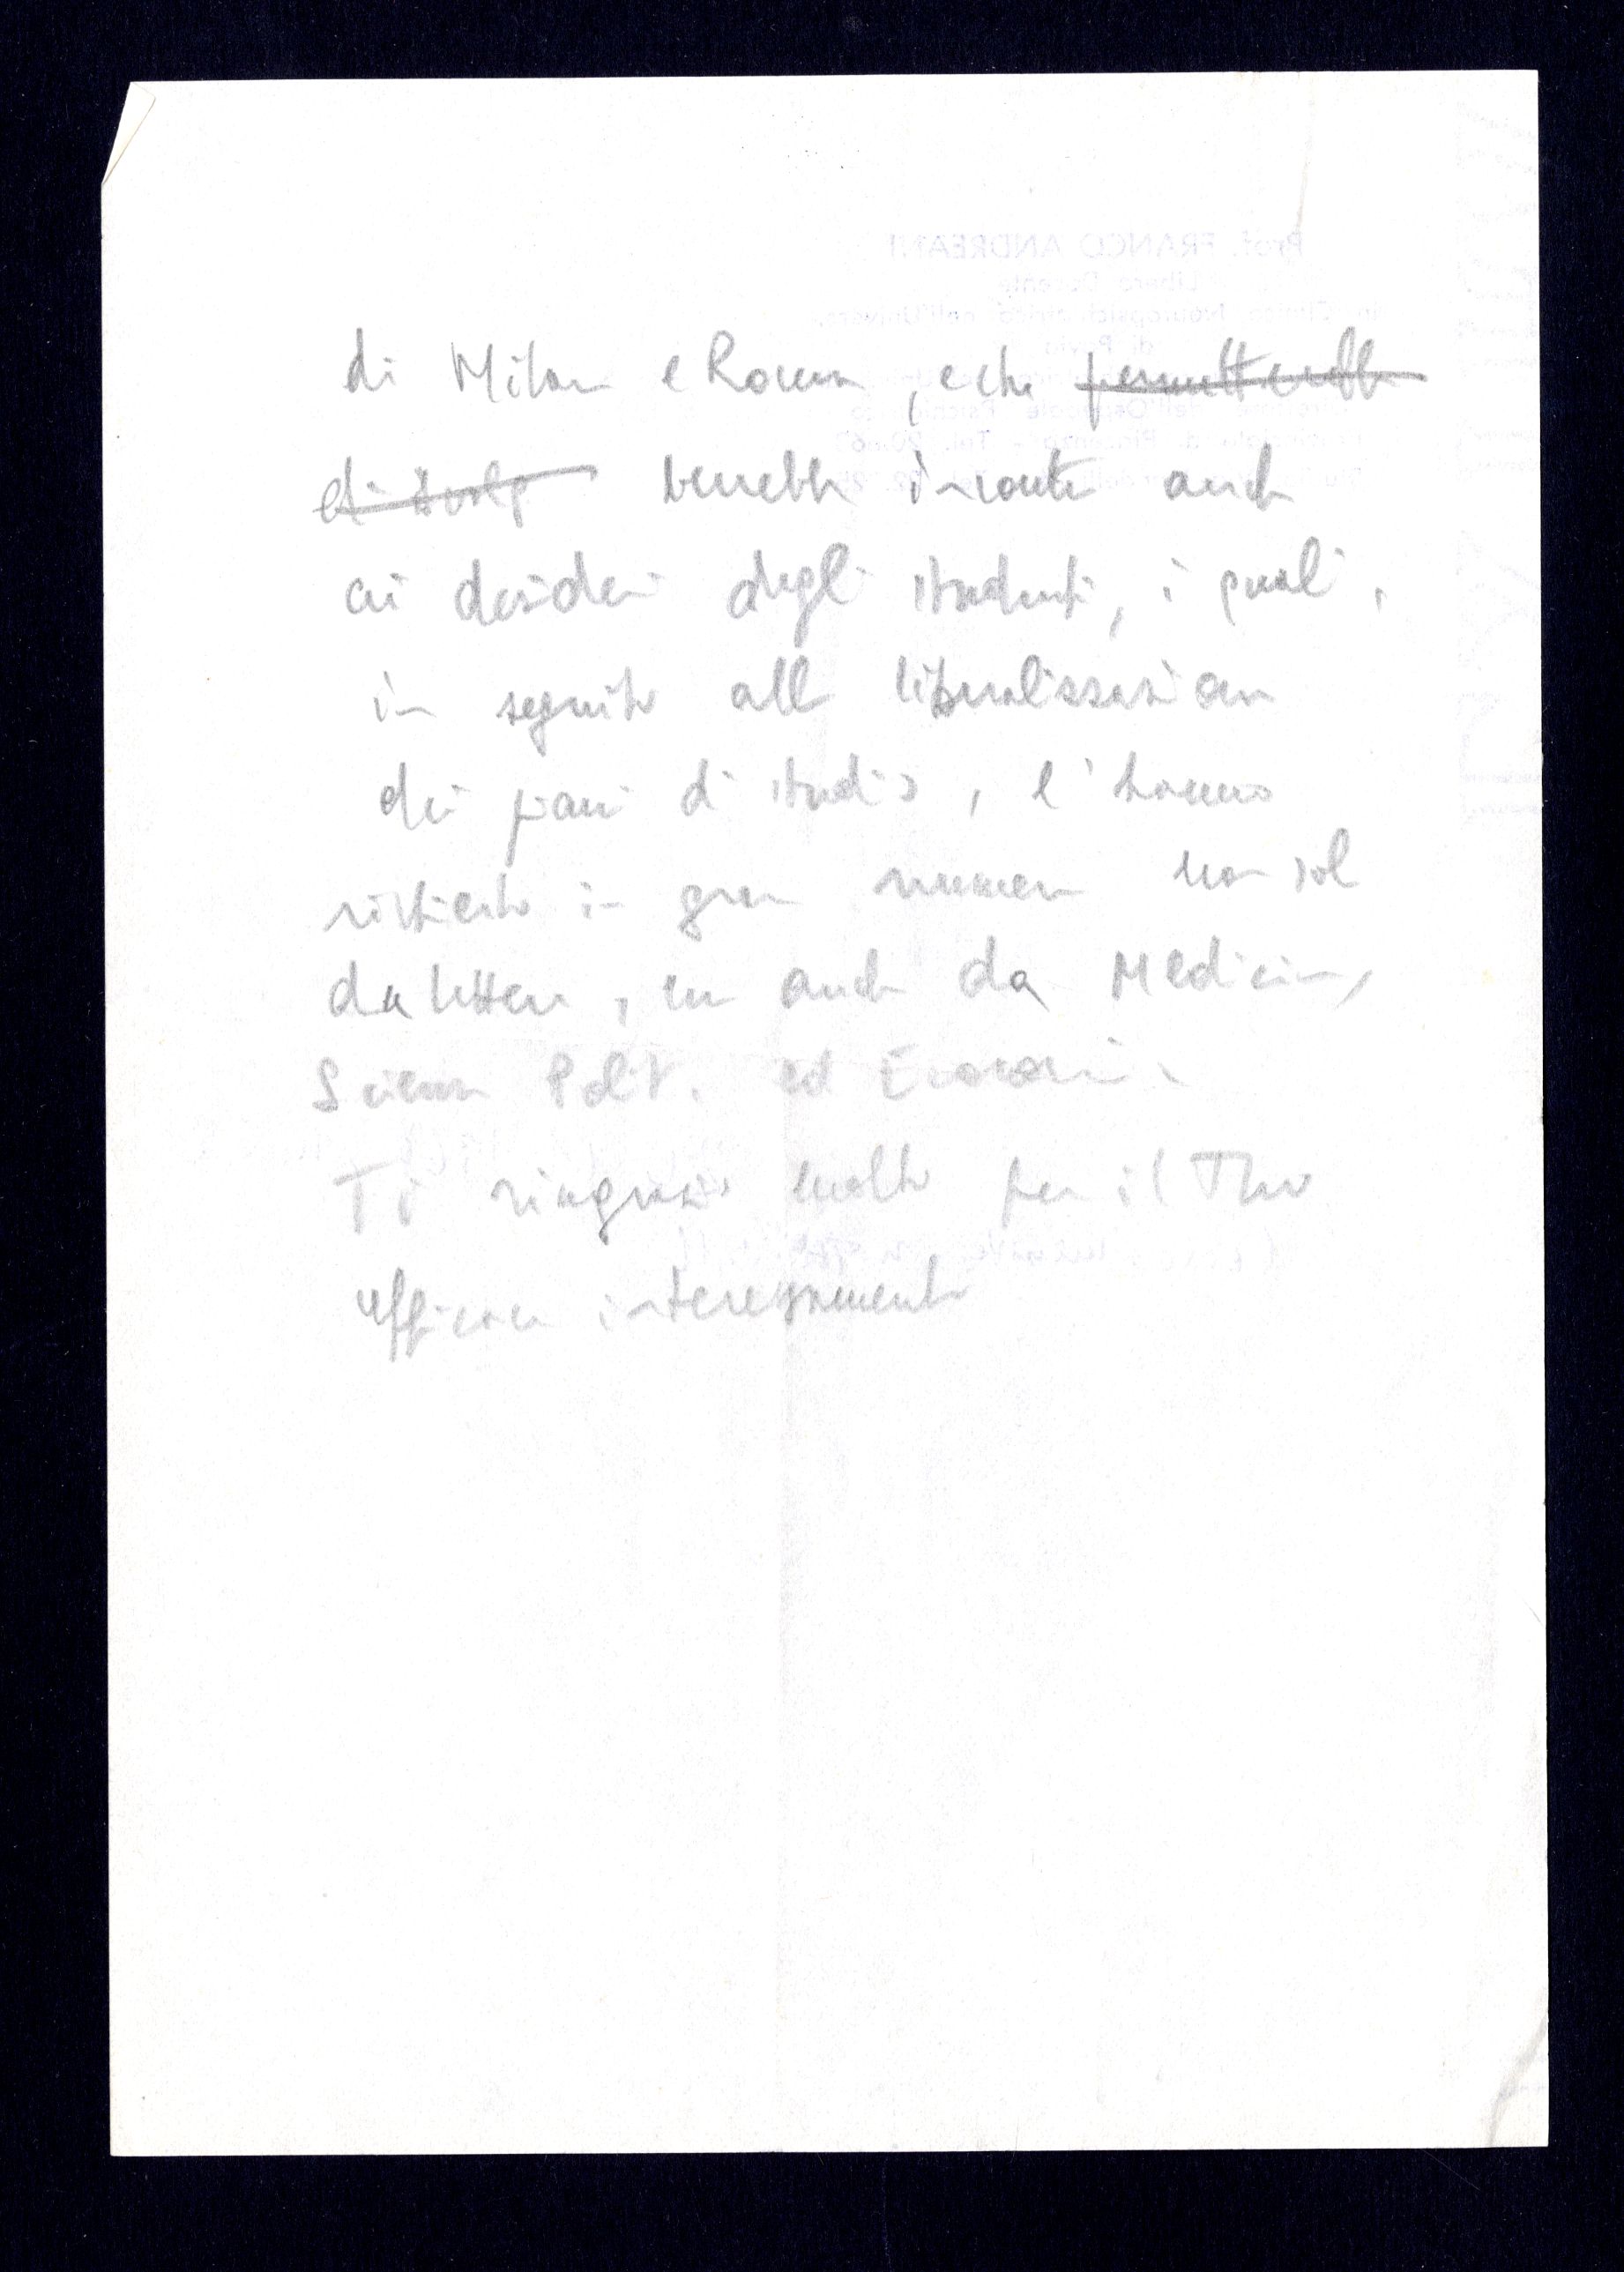 di Milano e Roma, e che permetterebbe
di svolg verrebbe incontro anche
ai desideri degli studenti, i quali,
in seguito alla liberalizzazione
dei piani di studio, l'hanno
richiesto in gran numero non solo
da lettere, ma anche da Medicina,
Scienze Polit. ed Economia.
Ti ringrazio molto per il Tuo
efficace interessamento